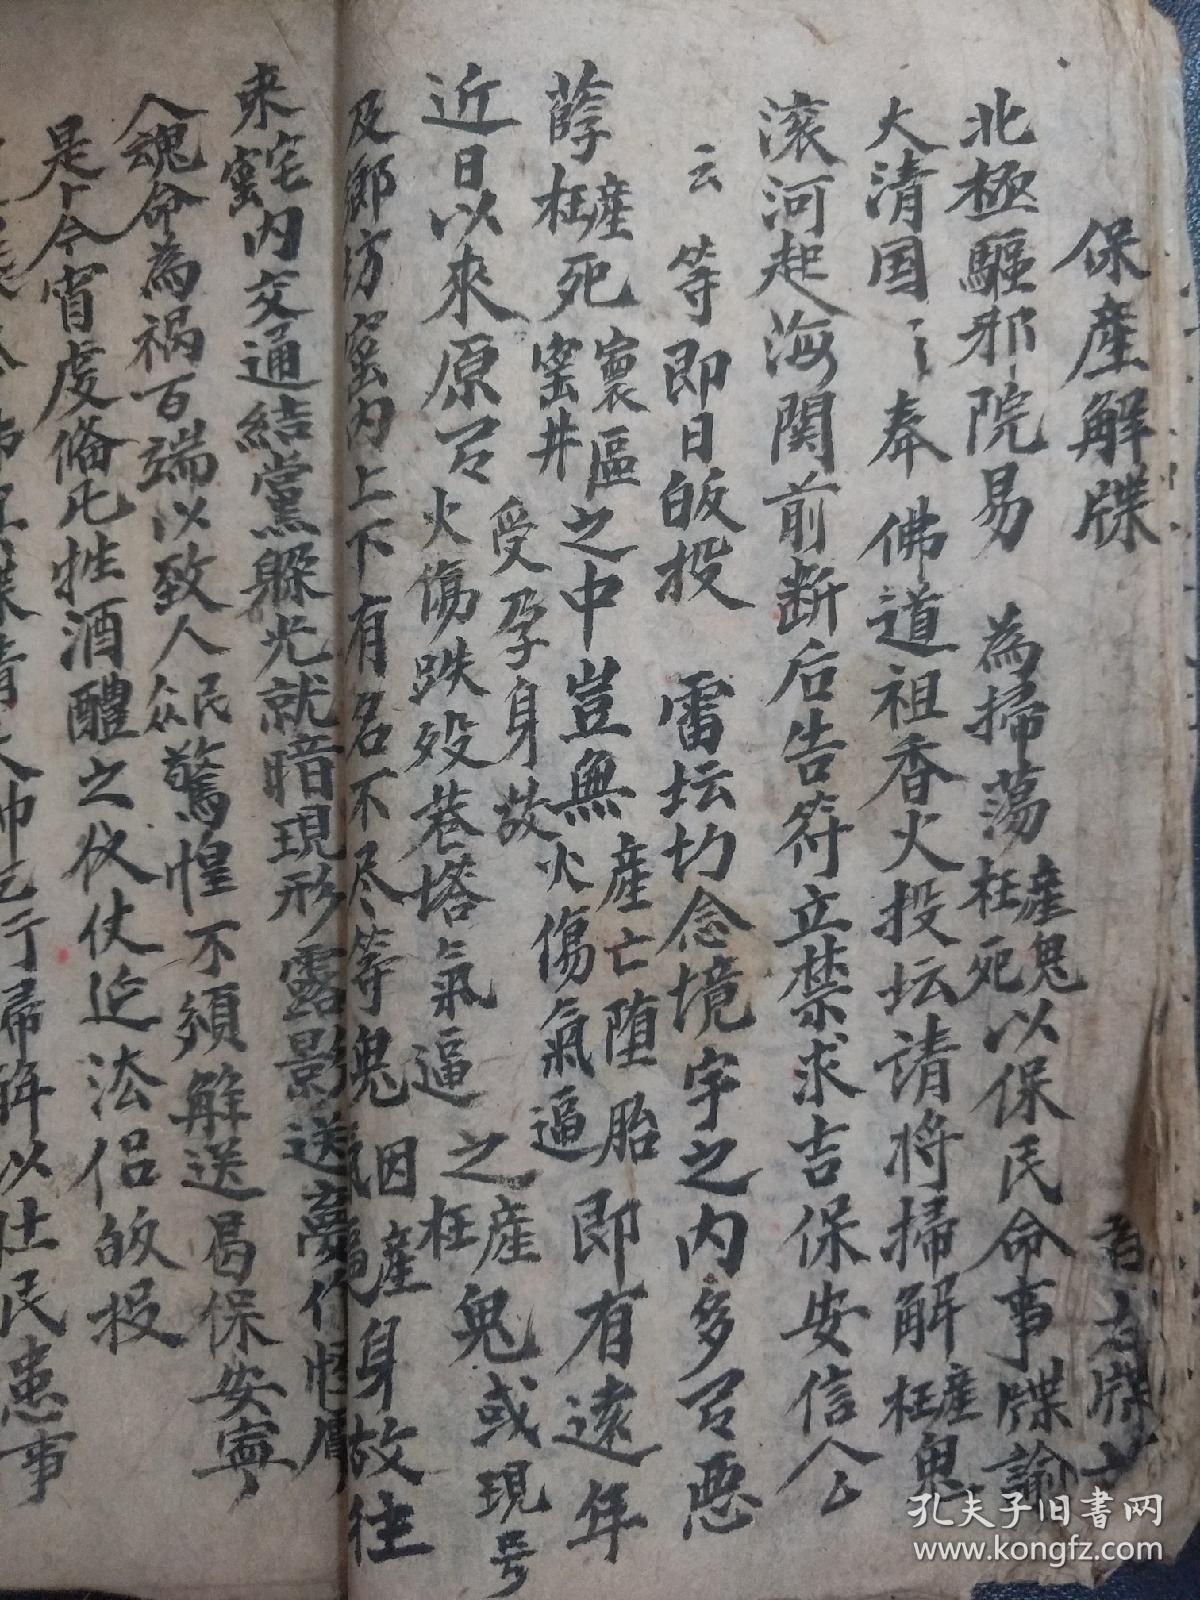 保產解牒
北極驅邪院易 為掃蕩產枉鬼死以保民命事牒諭
大清国 奉 佛道祖香火投坛請将掃解產枉鬼
滚河起海関前断后告符立禁求吉保安信人
云 等即日皈投 雷坛切念境宇之内多召惡
孽產枉死寰窑區井之中豈無產亡堕胎火傷氣逼即有遠年
近日以來原召受孕身故火傷跌殁巷塔氣逼之產枉鬼或現号
及鄉坊窑内上下有名不尽等鬼因產身故往
来宅窑内交通結黨躲光就暗現形露影送夢作怪
人魂命為禍百端以致人民眾驚惶不須解送曷保安寧
是卜今宵虔俻凡牲酒醴之仪仗迓法侣皈投
掃解以社民患事
孔夫子旧书网
www.kongfz.com